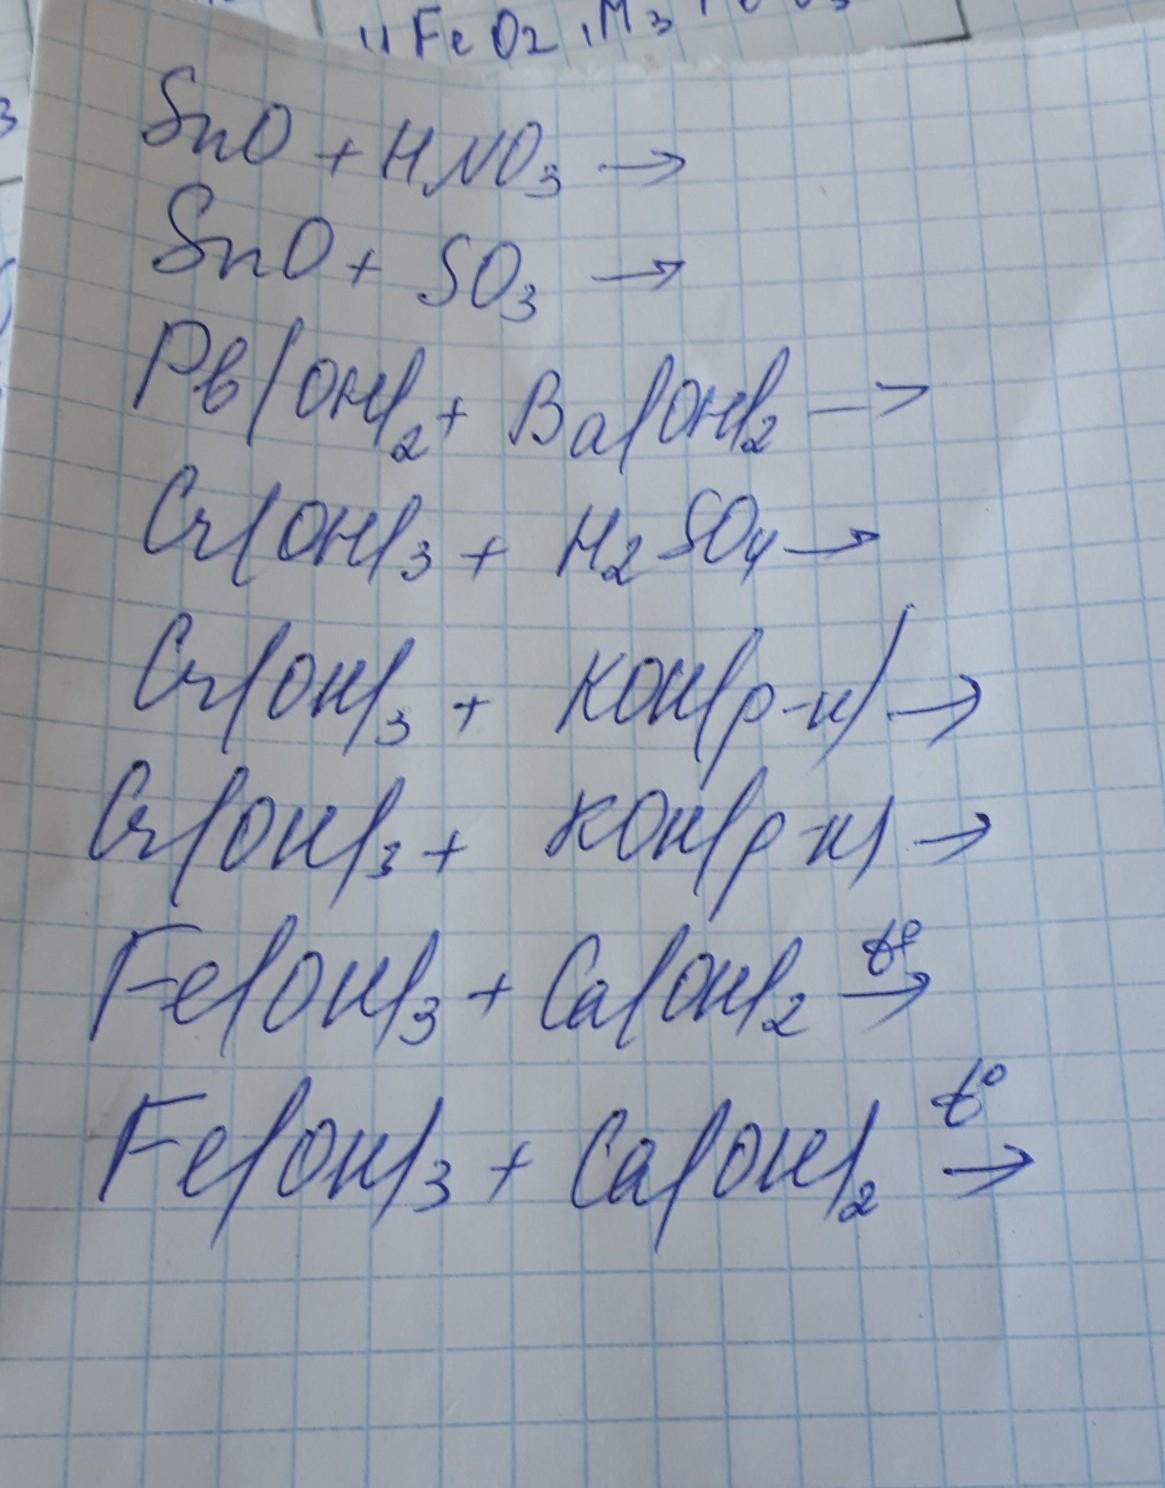 FeO₂, M₃
SnO + HNO₃ →
SnO + SO₃ →
Pb(OH)₂ + Ba(OH)₂ →
Cr(OH)₃ + H₂SO₄ →
Cr(OH)₃ + KOH(р-н) →
Cr(OH)₃ + KOH(р-н) →
Fe(OH)₃ + Ca(OH)₂ t° →
Fe(OH)₃ + Ca(OH)₂ t° →